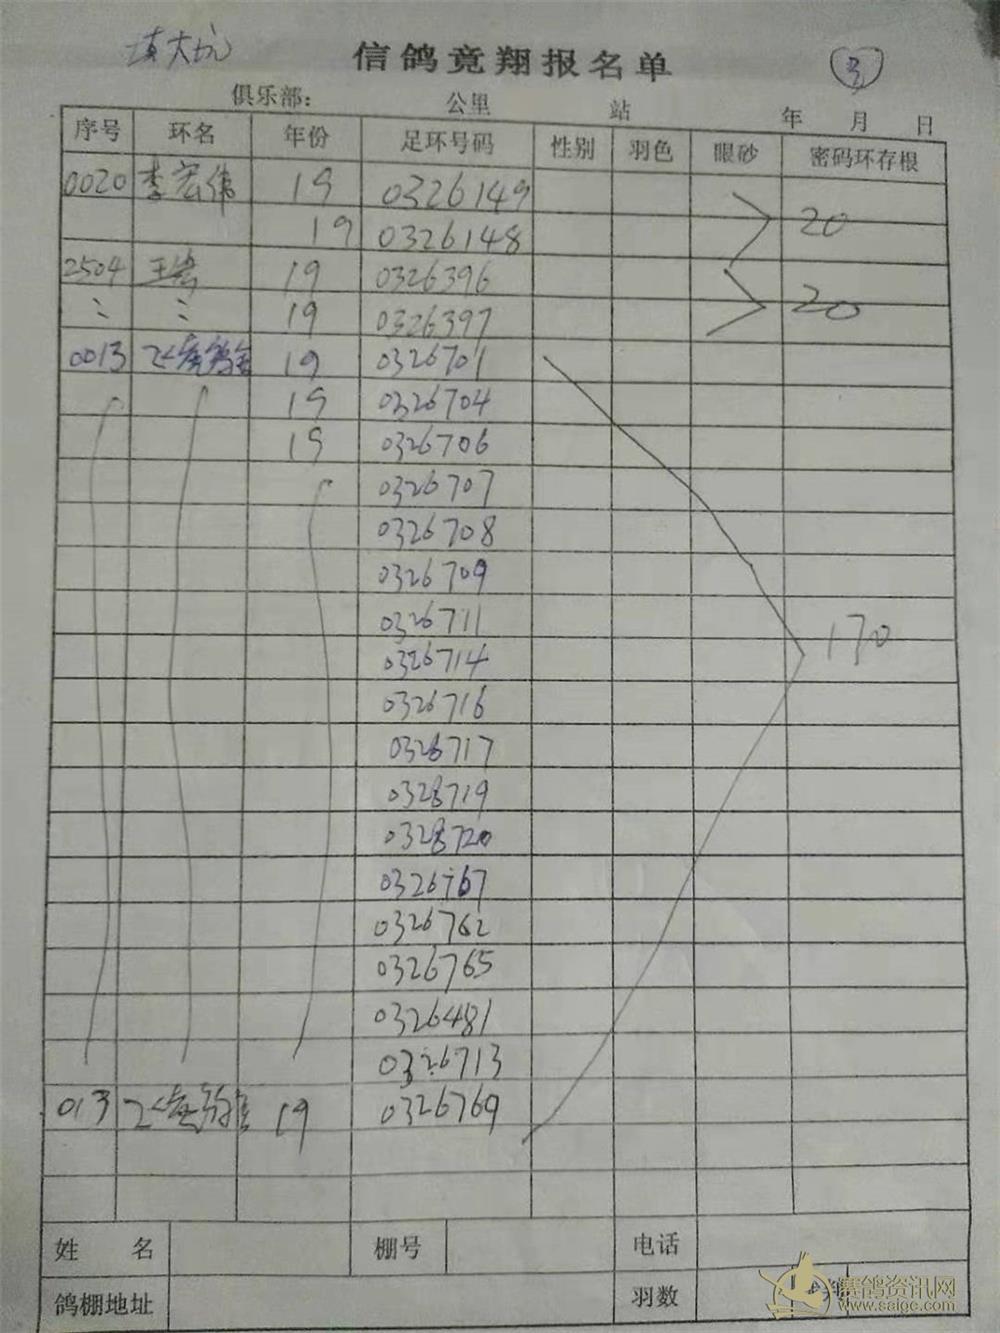 填大坑
信鸽竞翔报名单
3
俱乐部： 公里 站 年 月 日
序号 环名 年份 足环号码 性别 羽色 眼砂 密码环存根
0020 李宏伟 19 0326149
19 0326148 20
2504 19 0326396
19 0326397 20
0013 19 0326701
19 0326704
19 0326706
0326707
0326708
0326709
0326711
0326714 170
0326716
0326717
0328719
0328720
0326767
0326762
0326765
0326481
0326713
013 19 0326769
姓 名 棚号 电话
鸽棚地址 羽数
赛鸽资讯网
www.saige.com